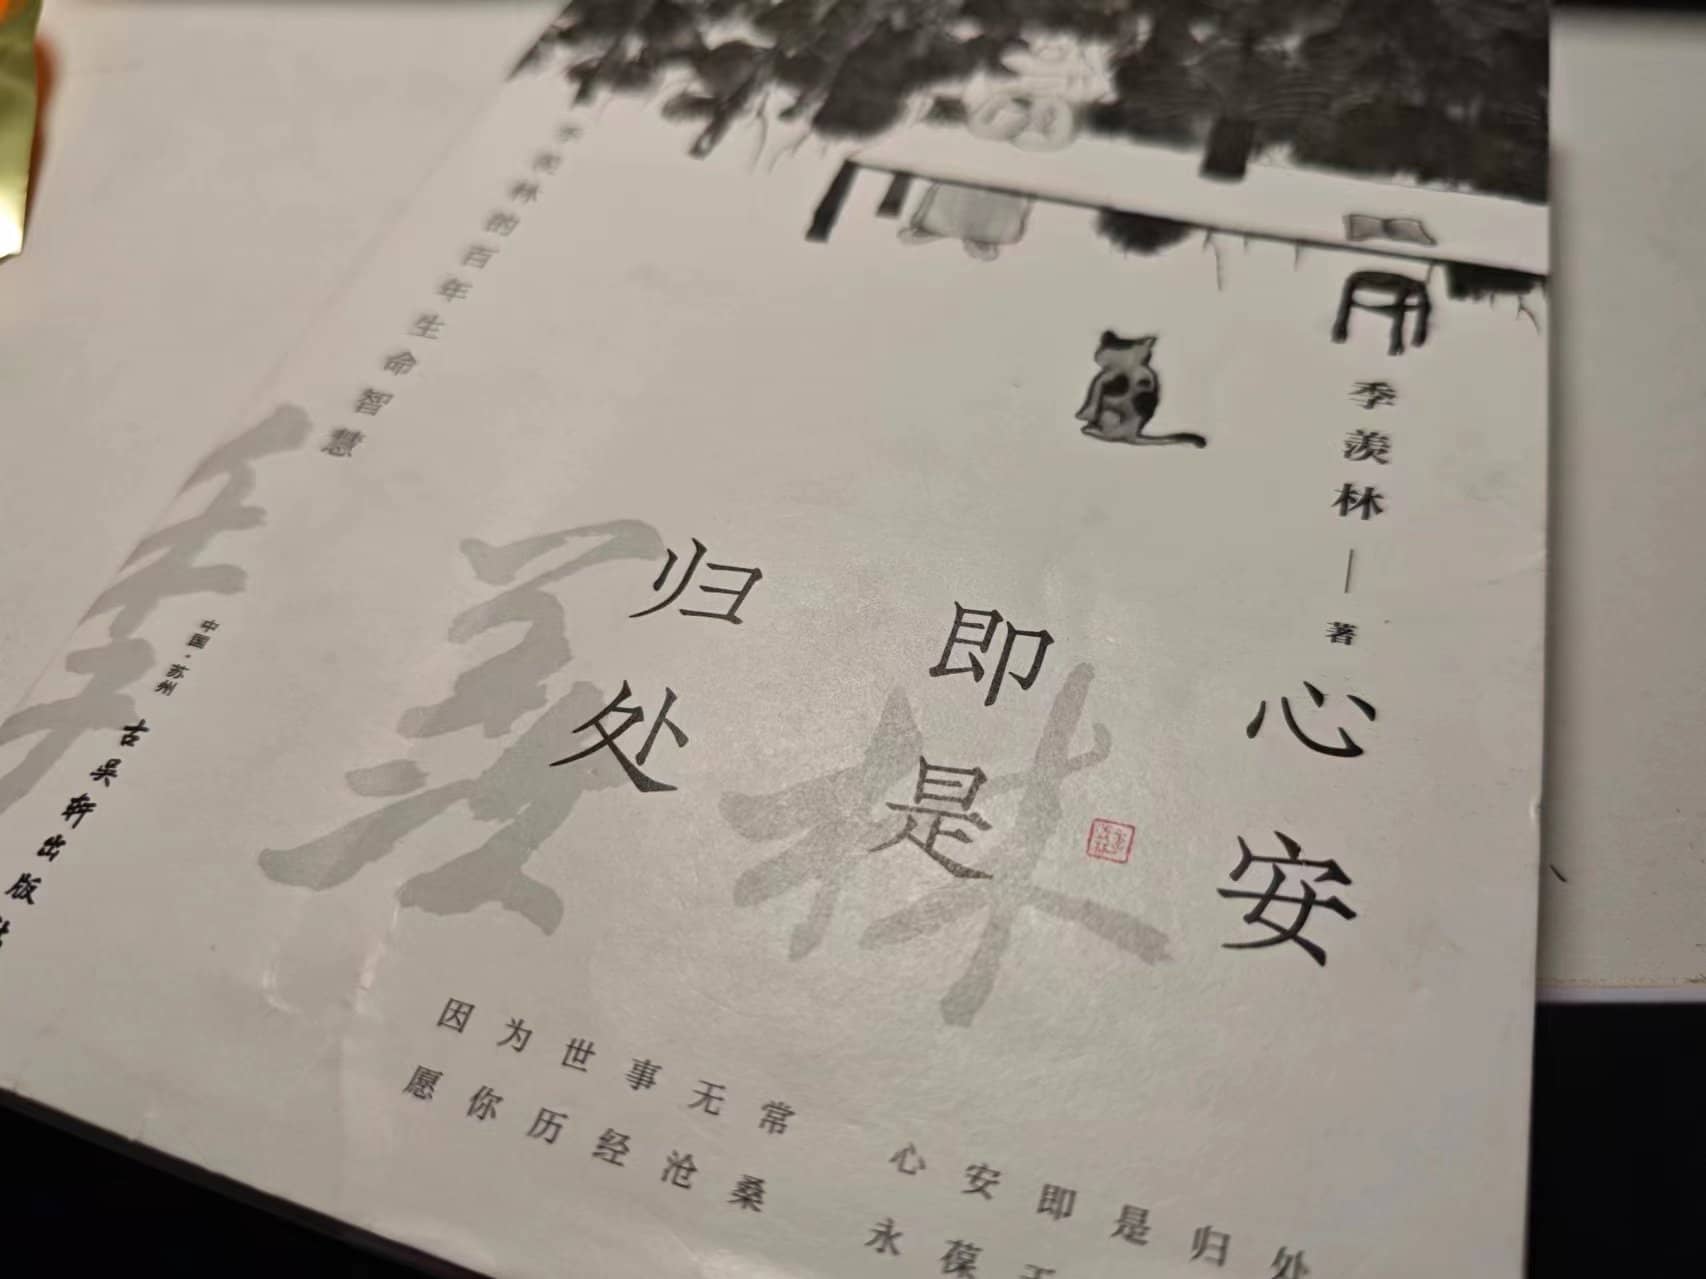 季羡林 著
心安
即是
归处
季羡林的百年生命智慧
季羡林
中国·苏州
古吴轩出版社
因为世事无常 心安即是归处
愿你历经沧桑 永葆